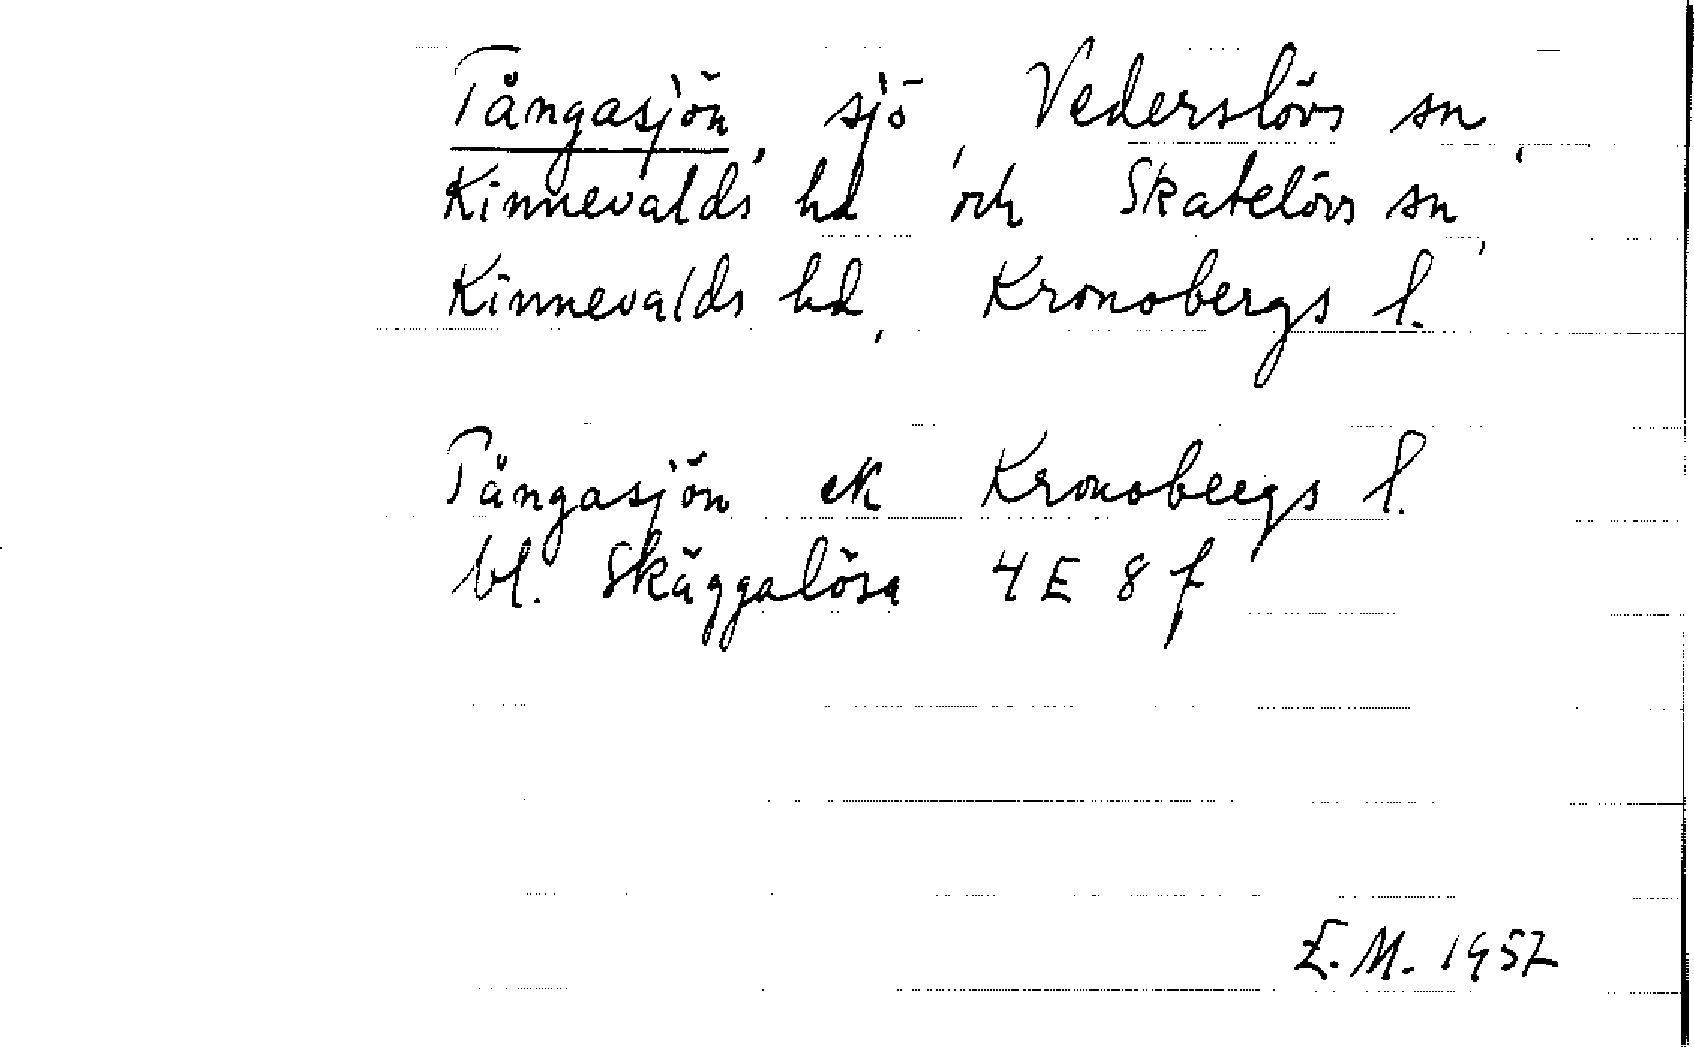 Tångasjön, sjö, Vederslövs sn,
Kinnevalds hd och Skatelövs sn,
Kinnevalds hd, Kronobergs l.
Tångasjön ek Kronobergs l.
bl. Skäggalösa 4 E 8 f
E.M. 1957